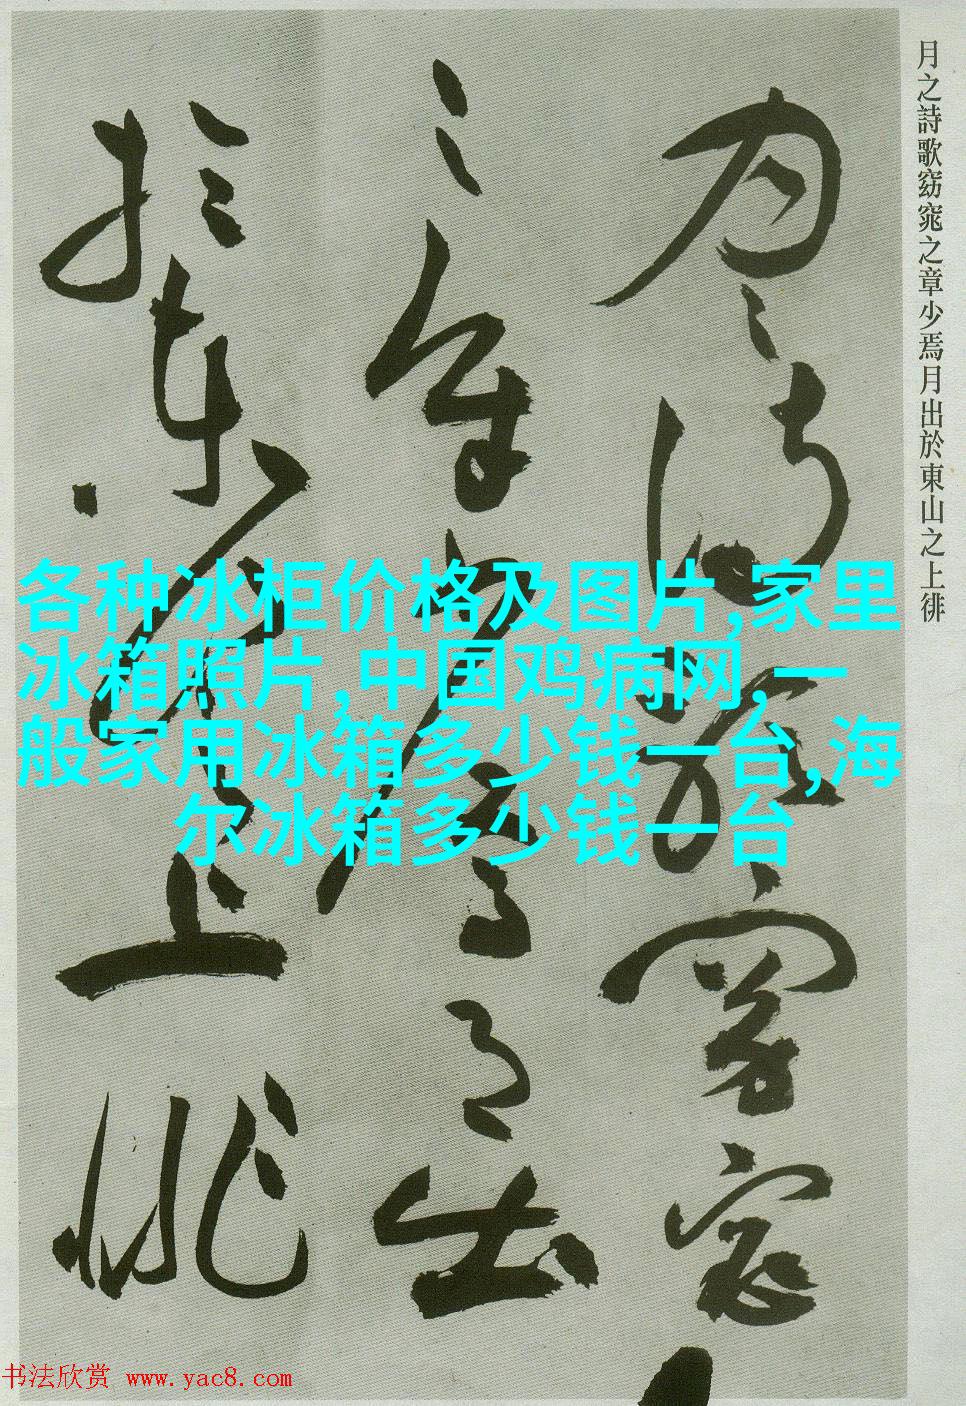 月之詩歌窈窕之章少焉月出於東山之上徘
月之詩歌窈窕
之章少焉月出
於東山之上徘
各种冰柜价格及图片,家里
冰箱照片,中国鸡病网,一
般家用冰箱多少钱一台,海
尔冰箱多少钱一台
书法欣赏 www.yac8.com